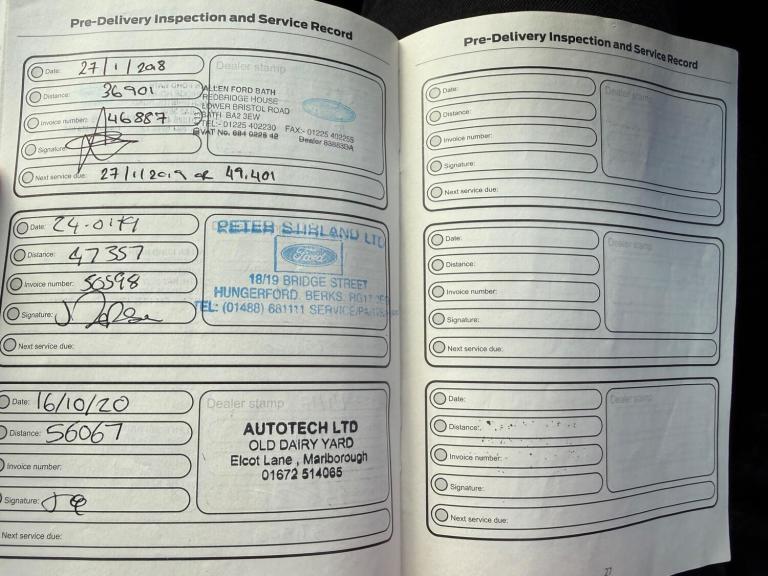 Pre-Delivery Inspection and Service Record
Date: 27/1/2018
Distance: 36901
Invoice number: 46887
Signature:
Next service due: 27/1/2019 or 49,401
Dealer stamp
ALLEN FORD BATH
REDBRIDGE HOUSE
LOWER BRISTOL ROAD
BATH BA2 3EW
TEL:- 01225 402230 FAX:- 01225 402255
VAT No. 684 0226 42
Ford
Date: 24-01-19
Distance: 47357
Invoice number: 50598
Signature:
Next service due:
PETER STIRLAND LTD
Ford
18/19 BRIDGE STREET
HUNGERFORD. BERKS. RG17
TEL: (01488) 681111
Date: 16/10/20
Distance: 56067
Invoice number:
Signature:
Next service due:
Dealer stamp
AUTOTECH LTD
OLD DAIRY YARD
Elcot Lane, Marlborough
01672 514065
Pre-Delivery Inspection and Service Record
Date:
Distance:
Invoice number:
Signature:
Next service due:
Dealer stamp
Date:
Distance:
Invoice number:
Signature:
Next service due:
Dealer stamp
Date:
Distance:
Invoice number:
Signature:
Next service due:
Dealer stamp
27